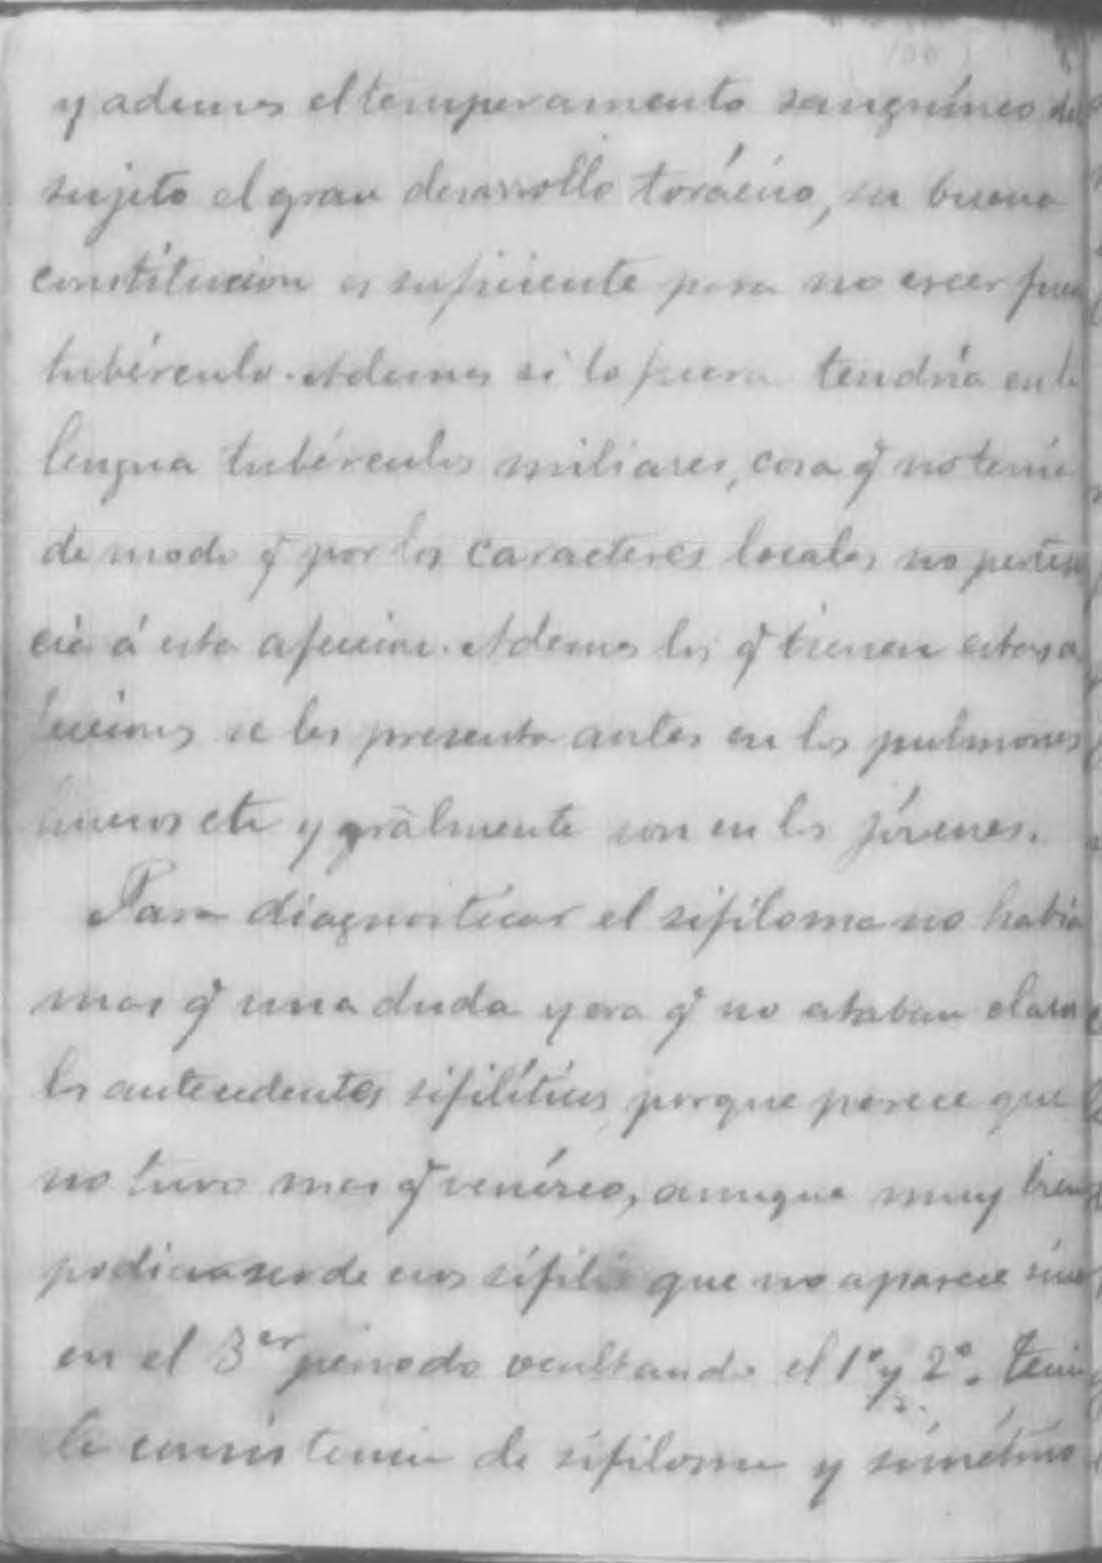 100
y ademas el temperamento sanguíneo del
sujeto el gran desarrollo torácico, su buena
constitucion es suficiente para no creer fuera
tubérculo. Ademas si lo fuera tendria en la
lengua tubérculos miliares, cosa q̃ no tenia
de modo q̃ por los caracteres locales no perten
cia á esta afeccion. Ademas los q̃ tienen estas a
fecciones se les presenta antes en los pulmones
huesos etc y gralmente son en los jóvenes.
Para diagnosticar el sifiloma no habia
mas q̃ una duda y era q̃ no estaban claros
los antecedentes sifilíticos, porque parece que
no tuvo mas q̃ venéreo, aunque muy bien
podia ser de esos sífilis que no aparece sino
en el 3er periodo ocultando el 1º y 2º. Tenia
la consistencia de sifiloma y simétrico